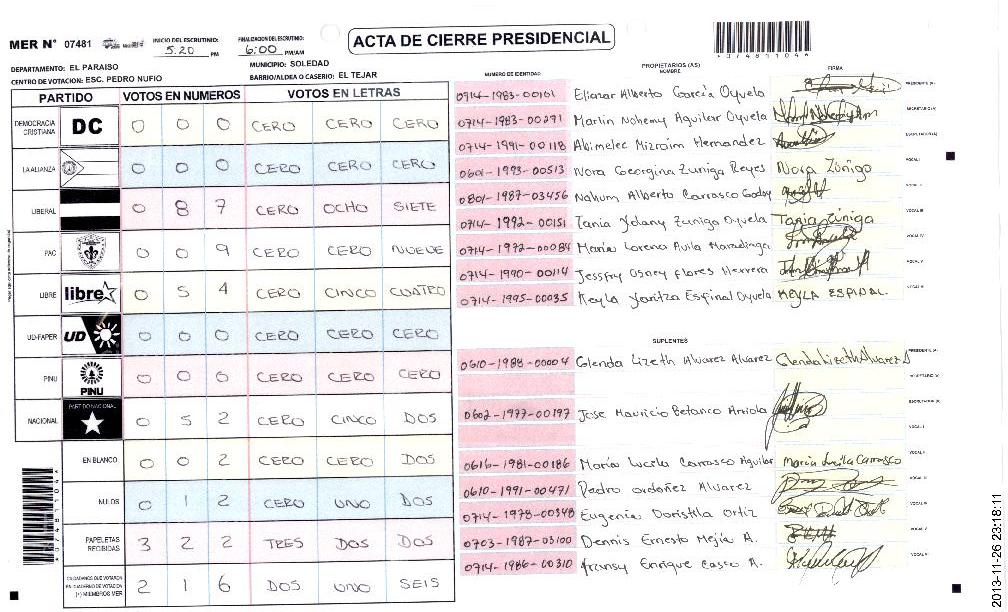 MER N° 07481
INICIO DEL ESCRUTINIO:
5:20 PM
FINALIZACION DEL ESCRUTINIO:
6:00 PM/AM
ACTA DE CIERRE PRESIDENCIAL
*07481104*
DEPARTAMENTO: EL PARAISO
MUNICIPIO: SOLEDAD
CENTRO DE VOTACION: ESC. PEDRO NUFIO
BARRIO/ALDEA O CASERIO: EL TEJAR
PARTIDO VOTOS EN NUMEROS VOTOS EN LETRAS
DEMOCRACIA CRISTIANA DC 0 0 0 CERO CERO CERO
LA ALIANZA 0 0 0 CERO CERO CERO
LIBERAL 0 8 7 CERO OCHO SIETE
PAC 0 0 9 CERO CERO NUEVE
LIBRE libre 0 5 4 CERO CINCO CUATRO
UD-FAPER UD 0 0 0 CERO CERO CERO
PINU PINU 0 0 0 CERO CERO CERO
NACIONAL PARTIDO NACIONAL 0 5 2 CERO CINCO DOS
EN BLANCO 0 0 2 CERO CERO DOS
NULOS 0 1 2 CERO UNO DOS
PAPELETAS RECIBIDAS 3 2 2 TRES DOS DOS
CIUDADANOS QUE VOTARON EN CUADERNO DE VOTACION (+) MIEMBROS MER 2 1 6 DOS UNO SEIS
NUMERO DE IDENTIDAD
PROPIETARIOS (AS)
NOMBRE
FIRMA
0714-1983-00101 Alberto García Oyuela PRESIDENTE (A)
0714-1983-00291 Marlin Nohemy Aguilar Oyuela SECRETARIO (A)
0714-1991-00118 Abimelec Mizraim Hernandez ESCRUTADOR (A)
0601-1993-00513 Nora Georgina Zuniga Reyes Nora Zúniga VOCAL I
0801-1987-03456 Nahum Alberto Carrasco Godoy VOCAL II
0714-1992-00151 Tania Yolany Zuniga Oyuela Tania Zúniga VOCAL III
0714-1972-00084 Maria Lorena Avila Maradiaga VOCAL IV
0714-1990-00114 Jessfry Osney Flores Herrera VOCAL V
0714-1995-00035 Keyla Yaritza Espinal Oyuela KEYLA ESPINAL VOCAL VI
SUPLENTES
0610-1988-00004 Glenda Lizeth Alvarez Alvarez Glenda Lizeth Alvarez A PRESIDENTE (A)
SECRETARIO (A)
0602-1977-00197 Jose Mauricio Betanco Arriola ESCRUTADOR (A)
VOCAL I
0616-1981-00186 María Lucila Carrasco Aguilar Maria Lucila Carrasco VOCAL II
0610-1991-00471 Pedro Ordoñez Alvarez VOCAL III
0714-1978-00348 Eugenia Doristila Ortiz VOCAL IV
0703-1987-03100 Dennis Ernesto Mejía A. VOCAL V
0714-1986-00310 Fransy Enrique Casco A. VOCAL VI
*07481104*
2013-11-26 23:18:11